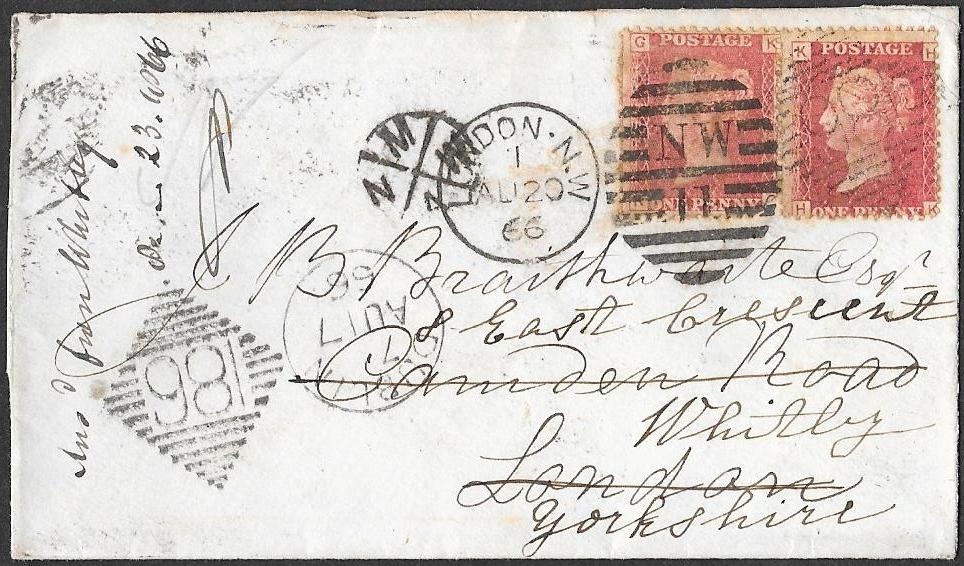 G POSTAGE K
K POSTAGE H
ONE PENNY
H ONE PENNY K
NW
11
LONDON·N.W
1
AU 20
66
N/M
J B Braithwaite Esqr
8 East Crescent
Camden Road
Whitby
London
Yorkshire
7
AU 17
66
186
Ansd from Whitby
23. 1866